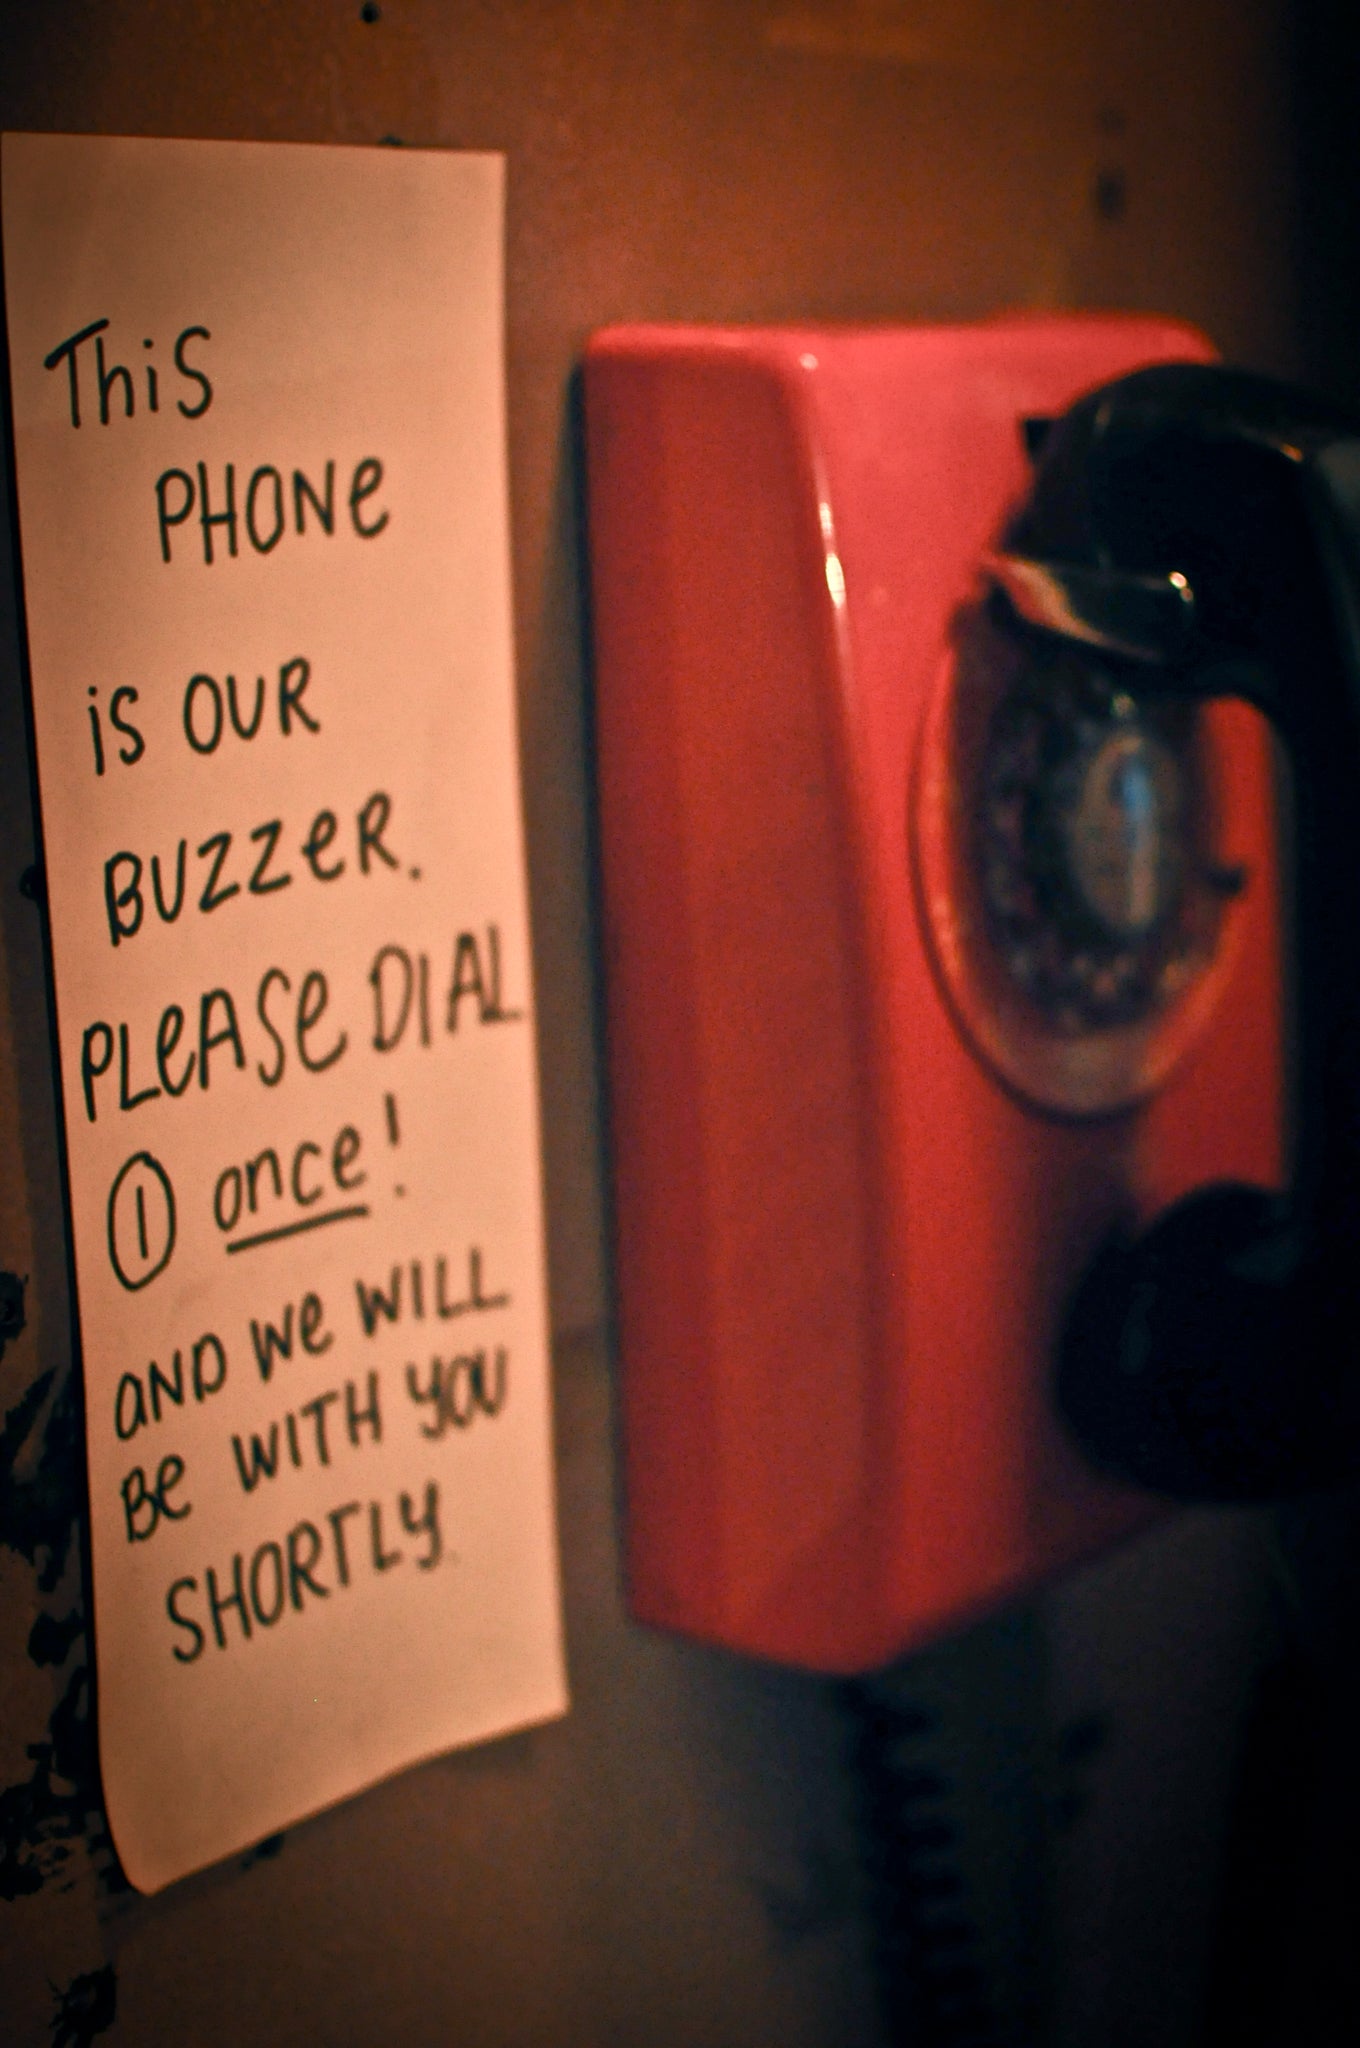 This
PHONe
is OUR
BUZZeR.
PLeASe DIAL
① once!
AND We WILL
Be WITH YOU
SHORTLY.